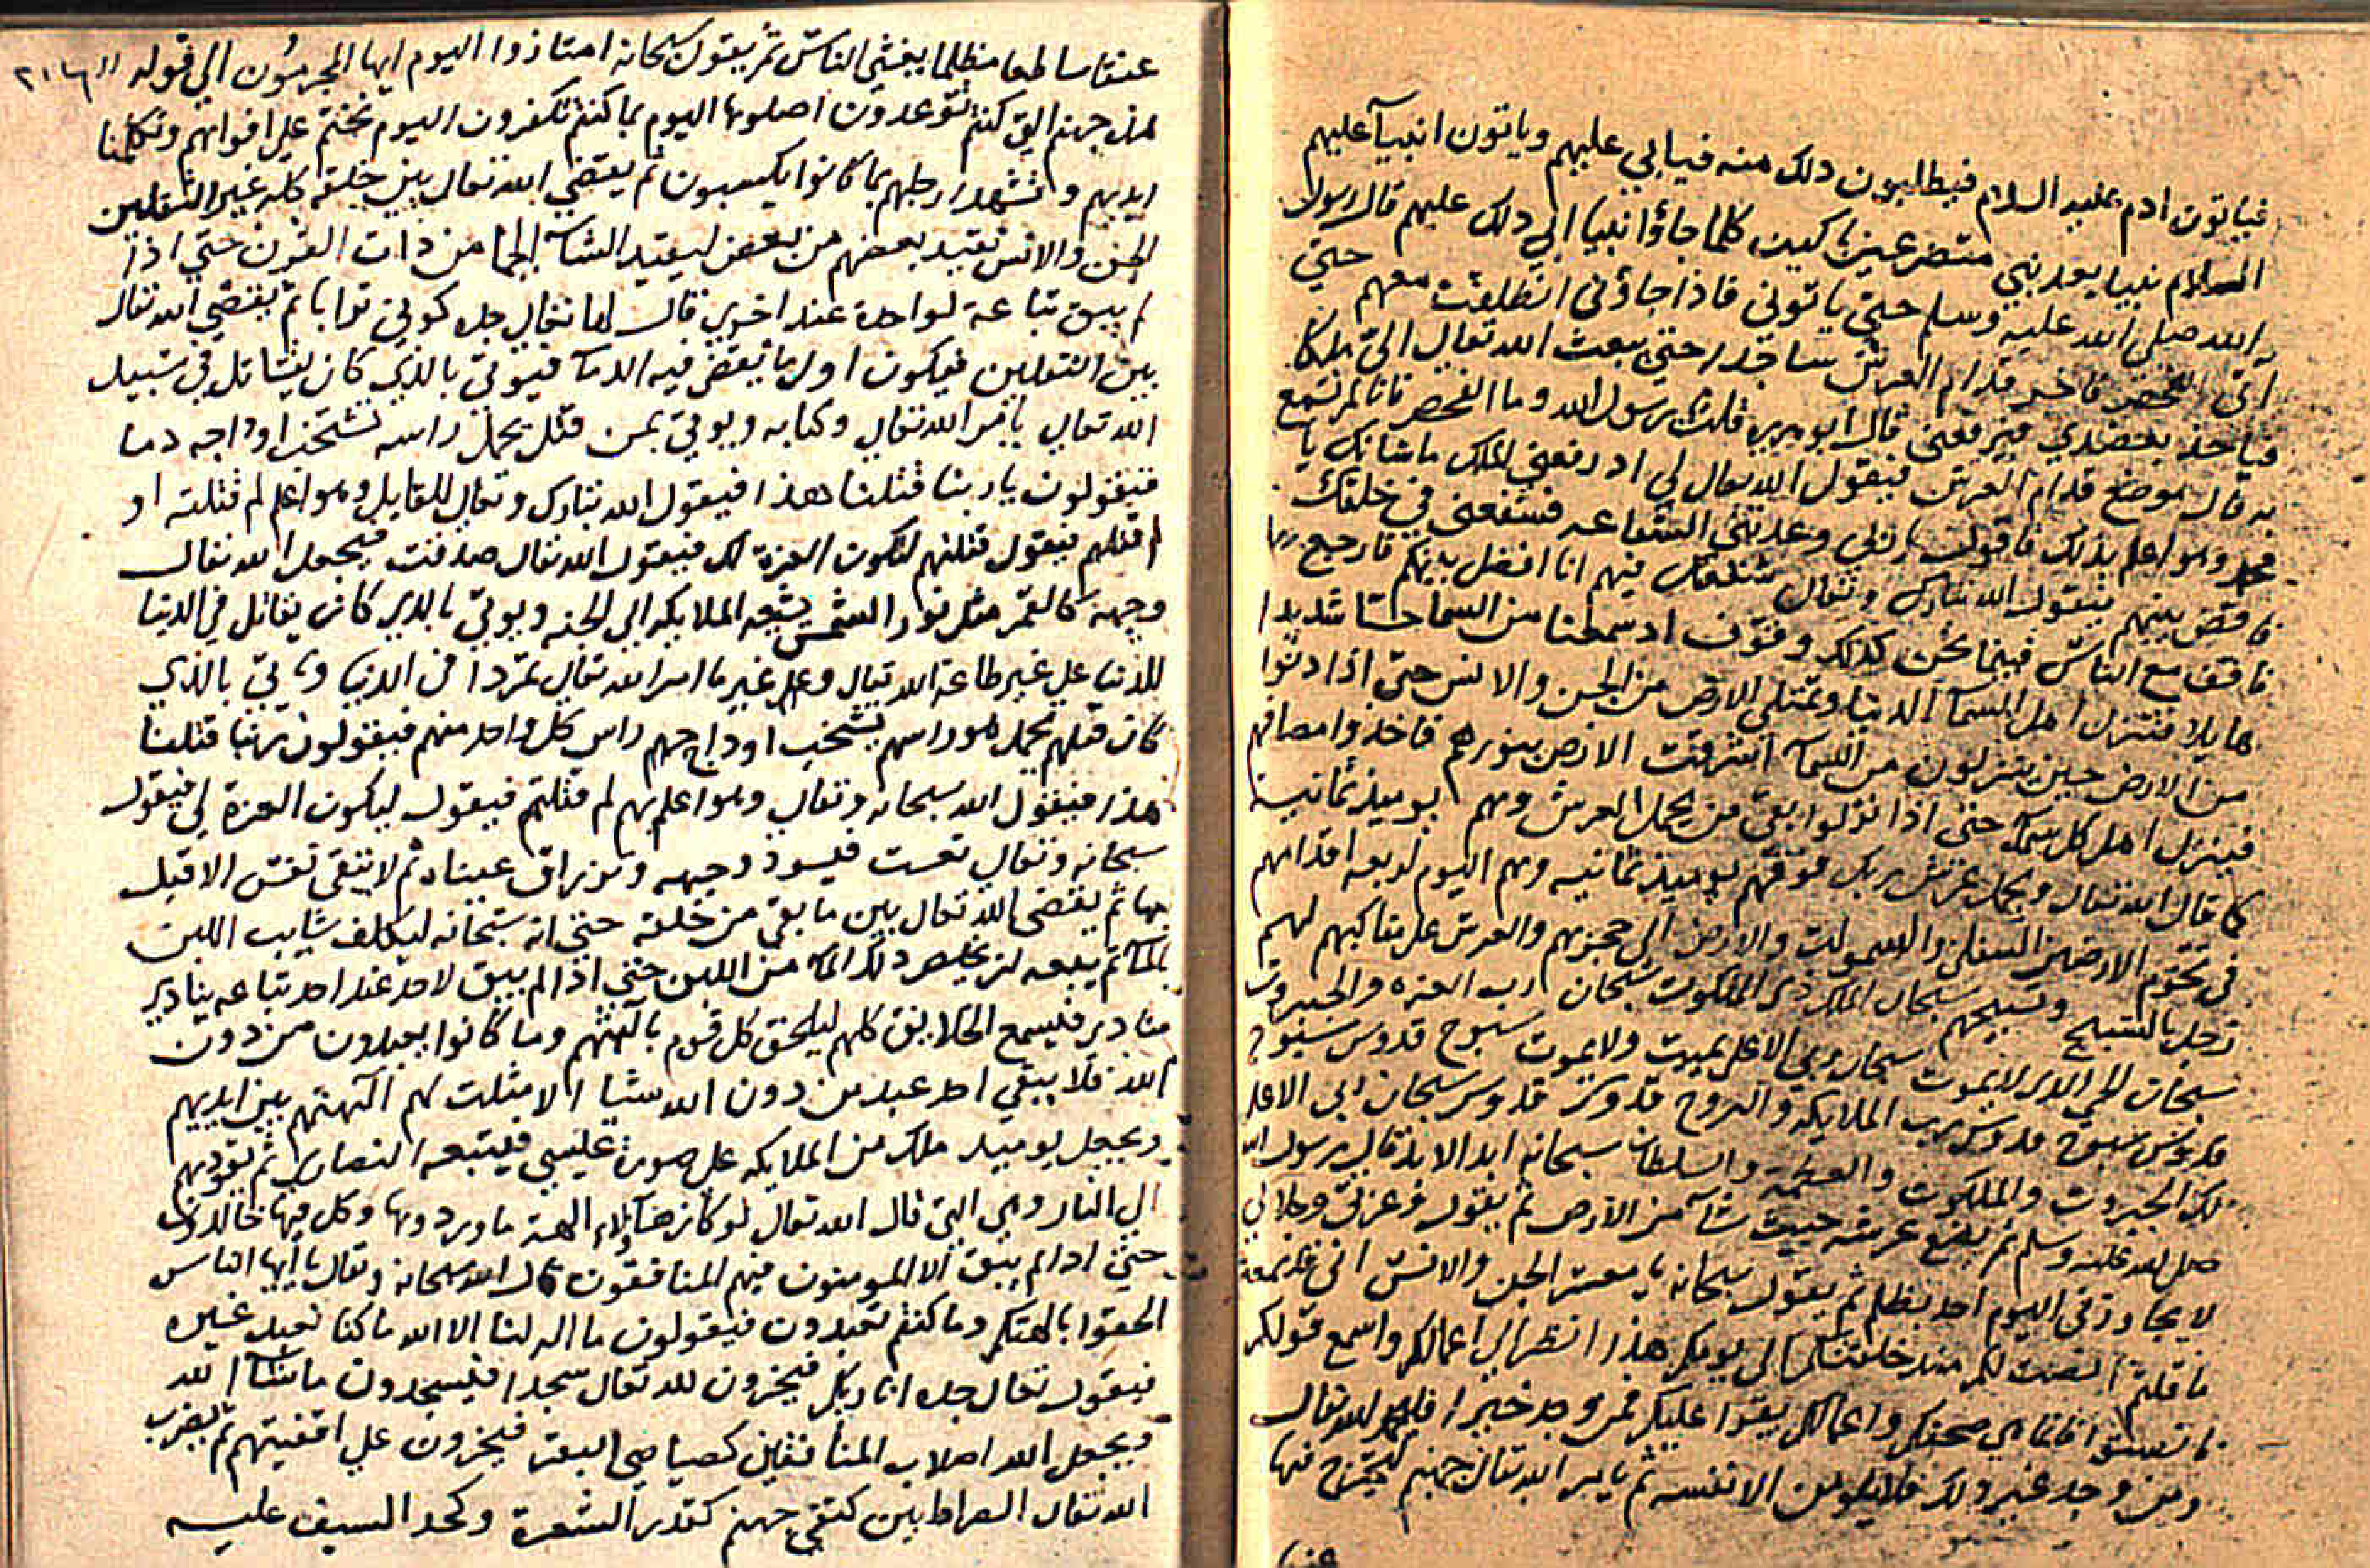 فياتون ادم عليه السلام فيطلبون ذلك منه فيابي عليهم وياتون انبيآ عليهم
السلام نبيا بعد نبي متضرعين باكين كلما جاؤا نبيا ابي ذلك عليهم قال رسول
الله صلي الله عليه وسلم حتي ياتوني فاذا جاؤني انطلقت معهم حتي
اتى الفحص فاخر قدام العرش ساجدا حتي يبعث الله تعالي الي ملكا
فياخذ بعضدي فيرفعني قال ابو هريره قلت يرسول الله وما الفحص فانا لم نسمع
به قال موضع قدام العرش فيقول الله تعالى لي اذ رفعني الملك ما شانك يا
محمد وهو اعلم بذلك فاقول يا ربي وعدتني الشفاعه فشفعني في خلقك
فاقض بينهم فيقول الله تبارك وتعالى شفعتك فيهم انا افضل بينكم فارجع
فاقف مع الناس فبينما نحن كذلك وقوف اذ سمعنا من السما حسا شديدا
هايلا فتنزل اهل السمآ الدنيا وتمتلى الارض من الجن والانس حتى اذا دنوا
من الارض حين ينزلون من السمآ اشرقت الارض بنورهم فاخذوا مصافهم
فينزل اهل كل سمآ حتى اذا نزلوا بقي من يحمل العرش وهم يوميذ ثمانية
كما قال الله تعالى ويحمل عرش ربك فوقهم يوميذ ثمانيه وهم اليوم اربعه اقدامهم
في تخوم الارضين السفلى والسموات والارض الى حجزهم والعرش على مناكبهم لهم
زجل بالتسبيح وتسبيحهم سبحان الملك ذى الملكوت سبحان رب العزه والجبروت
سبحان الحي الذي لا يموت سبحان ربي الاعلى يميت ولا يموت سبوح قدوس سبوح
قدوس سبوح قدوس رب الملايكه والروح قدوس قدوس سبحان ربي الاعلى
لك الجبروت والملكوت والعظمه والسلطان سبحانه ابد الابد قال رسول الله
صلى الله عليه وسلم ثم يضع عرشه حيث شآ من الارض ثم يقول فوعزتي وجلالي
لا يجاوزني اليوم احد بظلم ثم يقول سبحانه يا معشر الجن والانس اني
انصت لكم منذ خلقتكم الي يومكم هذا انظر الي اعمالكم واسمع قولكم
فانصتوا فانما هي صحفكم واعمالكم يقرا عليكم فمن وجد خيرا فليحمد الله تعالى
ومن وجد غير ذلك فلا يلومن الا نفسه ثم يامر الله تعالى جهنم فيخرج منها
عنقا
عنقا ساطعا مظلما يغشي الناس ثم يقول سبحانه امتازوا اليوم ايها المجرمون الي قوله
هذه جهنم التي كنتم توعدون اصلوها اليوم بما كنتم تكفرون اليوم نختم علي افواههم وتكلمنا
ايديهم وتشهد ارجلهم بما كانوا يكسبون ثم يقضي الله تعالى بين خلقه كله غير الثقلين
الجن والانس يقيد بعضهم من بعض ليقيد الشآه الجما من ذات القرن حتي اذا
لم يبق تباعة لواحدة عند اخرى قال لها تعالى جده كوني ترابا ثم يقضي الله تعالى
بين الثقلين فيكون اول ما يقضى فيه الدمآ فيوتى بالذي كان يقاتل في سبيل
الله تعالي بامر الله تعالي وكتابه ويوتي بمن قتل يحمل راسه تشخب اوداجه دما
فيقولون يا ربنا قتلنا هذا فيقول الله تبارك وتعالى للقايل وهو اعلم لم قتلته او
لم قتلهم فيقول قتلتهم لتكون العزة لك فيقول الله تعالى صدقت فيجعل الله تعالى
وجهه كالقمر مثل نور الشمس يشيعه الملايكه الي الجنه ويوتي بالذي كان يقاتل في الدنيا
للدنيا على غير طاعة الله تعالى وعلى غير ما امر الله تعالى تمردا في الدنيا وياتي بالذي
كان قتلهم يحمل هو راسهم يشخب اوداجهم راس كل واحد منهم فيقولون ربنا قتلنا
هذا فيقول الله سبحانه وتعالي وهو اعلم بهم لم قتلتهم فيقول ليكون العزة لي فيقول
سبحانه وتعالي تعست فيسود وجهه وتزراق عيناه ثم لا يبقى نفس الا قتل
بها ثم يقضي الله تعالى بين ما بقي من خلقه حتى انه سبحانه ليكلف شايب اللبن
بالمآ ثم يبيعه ان يخلص ذلك المآ من اللبن حتى اذا لم يبق لاحد عند احد تباعه ينادي
مناد يسمع الخلايق كلهم ليلحق كل قوم بآلهتهم وما كانوا يعبدون من دون
الله فلا يبقي احد عبد من دون الله شيا الا مثلت لهم آلهتهم بين ايديهم
ويجعل يوميذ ملك من الملايكه على صورة عيسي فيتبعه النصاري ثم تقودهم
الي النار وهي التي قال الله تعالى لو كان هآولاء الهة ما وردوها وكل فيها خالدون
حتي اذا لم يبق الا المومنون فيهم المنافقون قال الله سبحانه وتعالى يا أيها الناس
الحقوا بالهتكم وما كنتم تعبدون فيقولون ما اله لنا الا الله ما كنا نعبد غيره
فيقول تعالى جده انا ربكم فيخرون لله تعالى سجدا فيسجدون ما شآ الله
ويجعل الله اصلاب المنافقين كصياصي البقر فيخرون علي اقفيتهم ثم يضرب
الله تعالى الصراط بين كتفي جهنم كقدر الشعرة وكحد السيف عليه